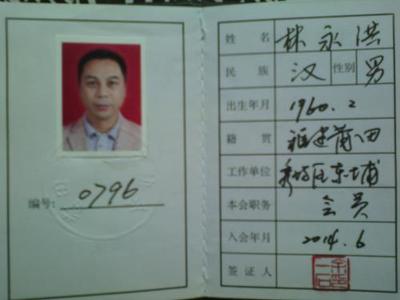 编号: 0796
姓名 林永洪
民族 汉 性别 男
出生年月 1960.2
籍贯 福建莆田
工作单位 秀屿区东埔
本会职务 会员
入会年月 2014.6
签证人